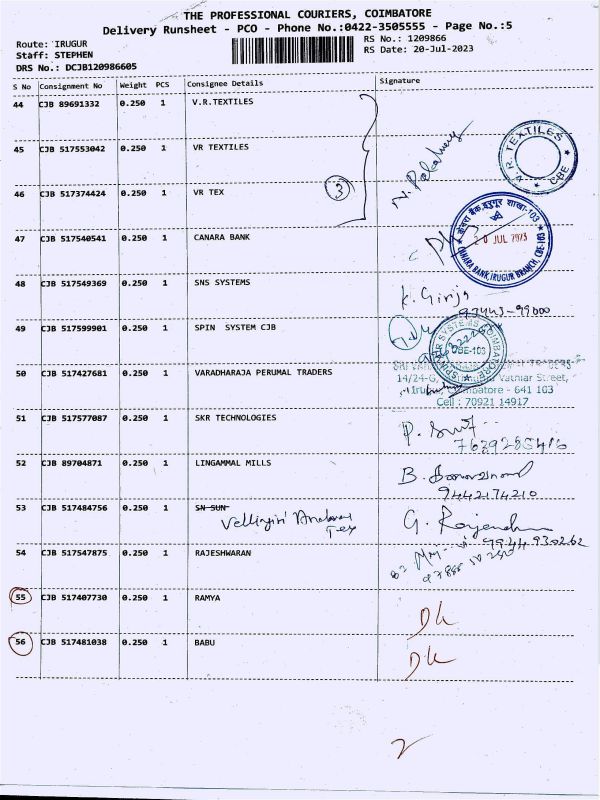 THE PROFESSIONAL COURIERS, COIMBATORE
Delivery Runsheet - PCO - Phone No.:0422-3505555 - Page No.:5
Route: IRUGUR
Staff: STEPHEN
DRS No.: DCJB120986605
RS No.: 1209866
RS Date: 20-Jul-2023
S No Consignment No Weight PCS Consignee Details Signature
44 CJB 89691332 0.250 1 V.R.TEXTILES
45 CJB 517553042 0.250 1 VR TEXTILES
V.R. TEXTILES
CBE
46 CJB 517374424 0.250 1 VR TEX
3
47 CJB 517540541 0.250 1 CANARA BANK
20 JUL 2023
CANARA BANK, IRUGUR BRANCH, CBE-103
48 CJB 517549369 0.250 1 SNS SYSTEMS
K. Girija
93443-99000
49 CJB 517599901 0.250 1 SPIN SYSTEM CJB
CBE-103
50 CJB 517427681 0.250 1 VARADHARAJA PERUMAL TRADERS
14/24-G,
Street,
- 641 103
Cell : 70921 14917
51 CJB 517577087 0.250 1 SKR TECHNOLOGIES
7639285416
52 CJB 89704871 0.250 1 LINGAMMAL MILLS
9442174210
53 CJB 517484756 0.250 1 SN SUN
Vellingiri Andavar
Tex
G. Rajendran
99449 30262
54 CJB 517547875 0.250 1 RAJESHWARAN
55 CJB 517407730 0.250 1 RAMYA
DL
56 CJB 517481038 0.250 1 BABU
DL
2